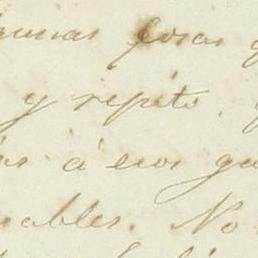 gunas cosas q
y repito.
ás á esos que
ables. No